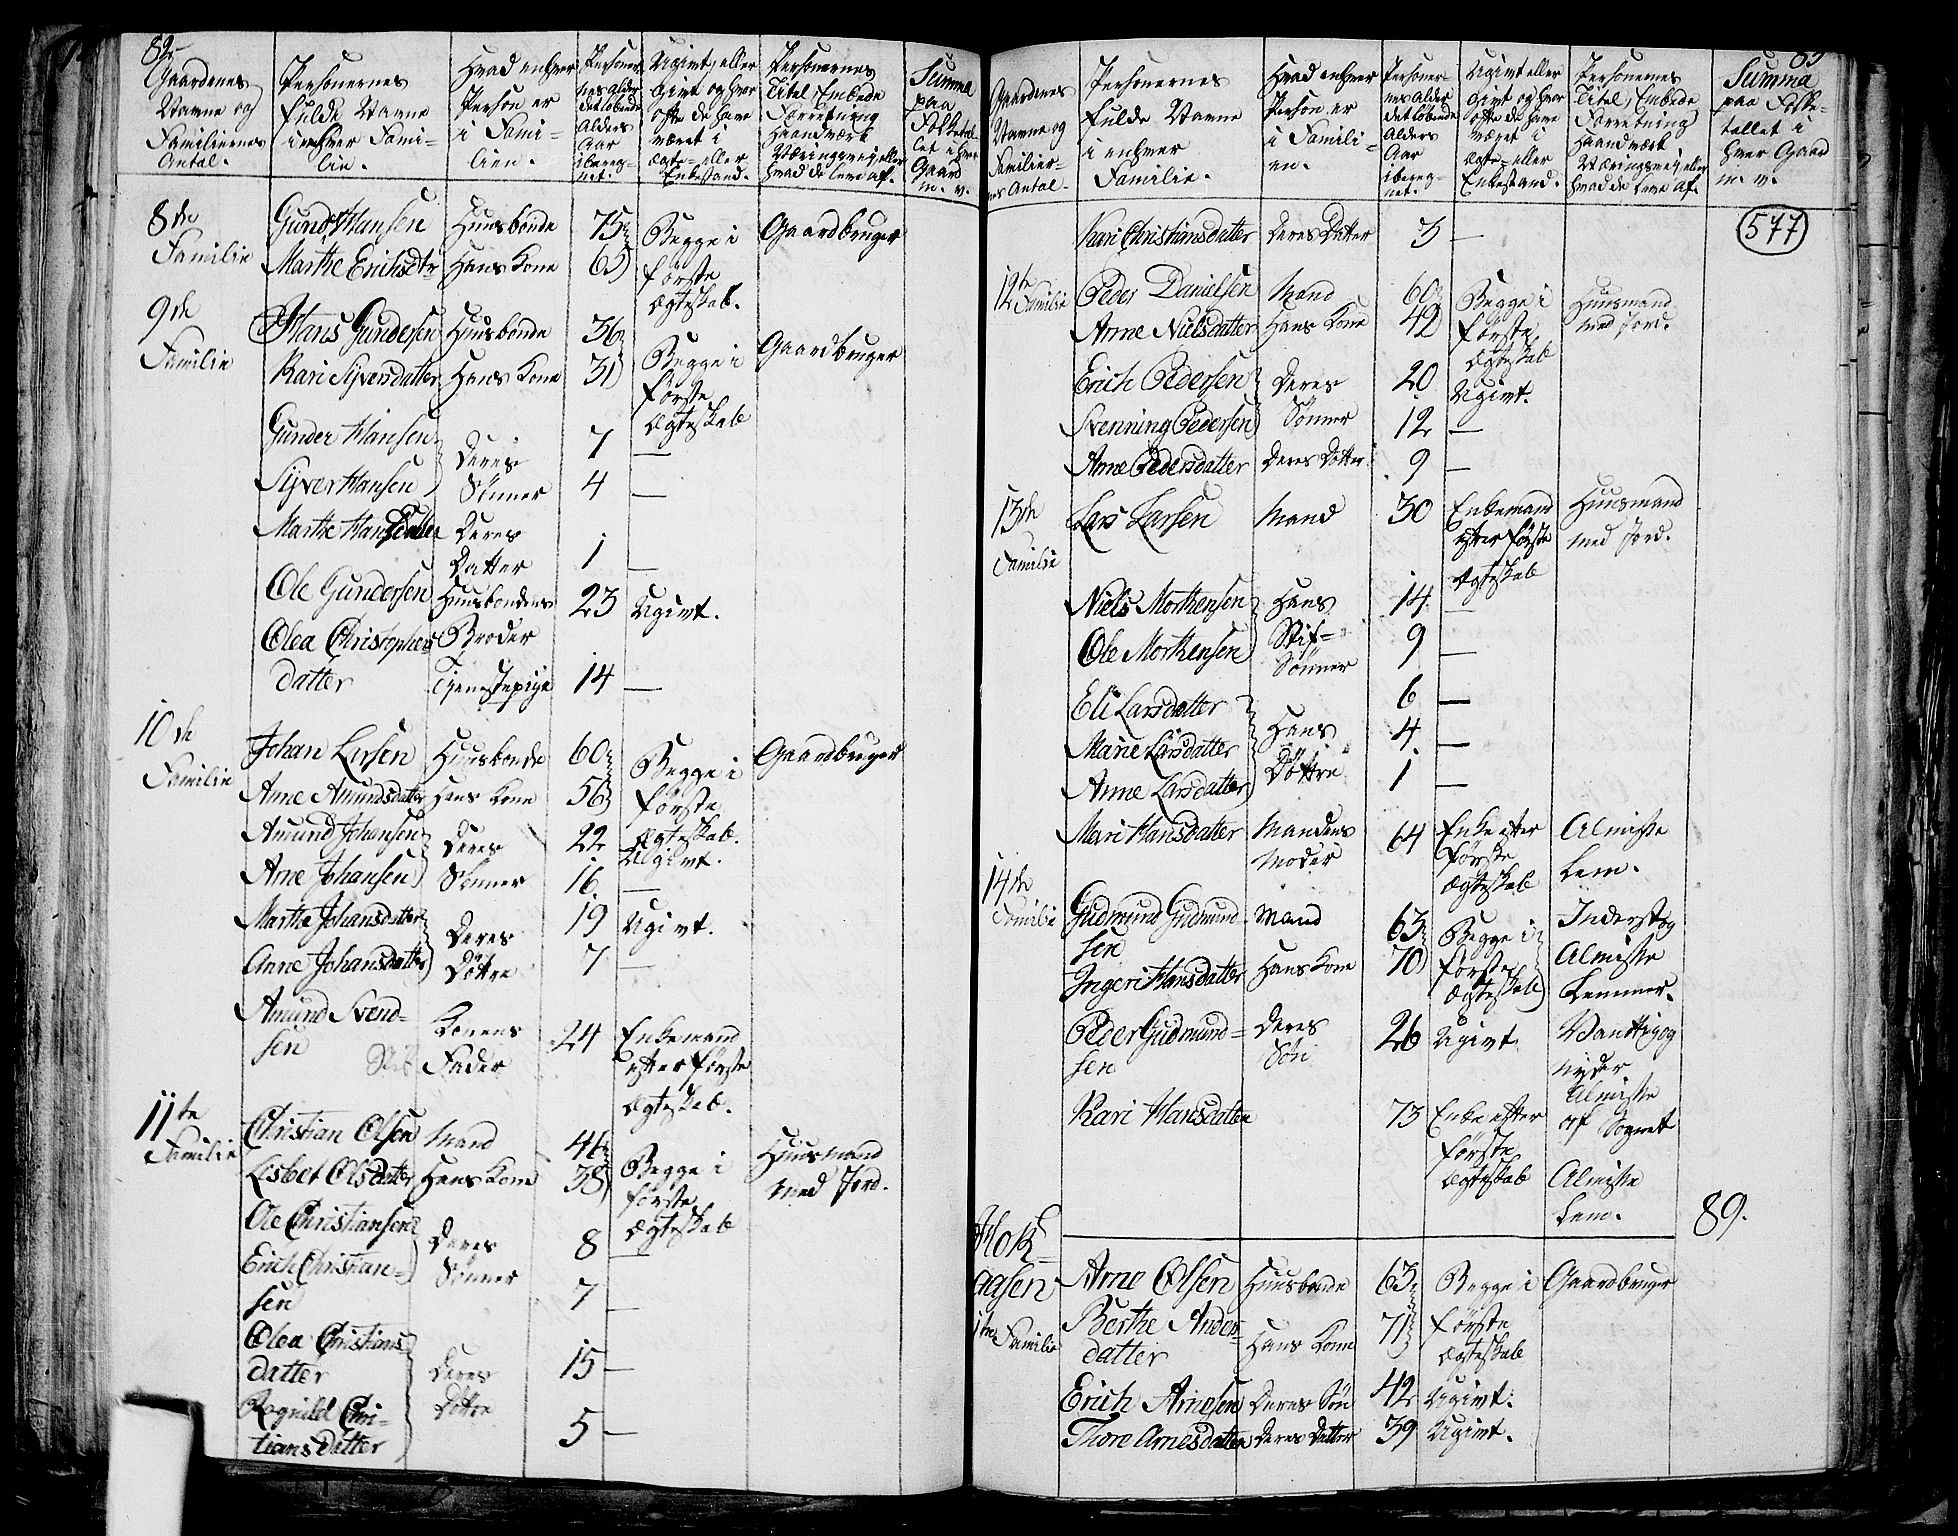 82
Gaardenes Navne og Familiernes Antal.
Personernes fulde Navne i enhver Familie.
Hvad enhver Person er i Familien.
Personernes Alder det løbende Alders Aar iberegnet.
Ugivt, eller Givt og hvor ofte de have været i Ægte- eller Enkestand.
Personernes Titel, Embede Forretning Haandværk Næringsvej eller hvad de leve af.
Summa paa Folketallet i hver Gaard m. v.
8de Familie
Gund Hansen Huusbonde 75 Begge i første Ægteskab. Gaardbruger
Marthe Erichsdtr Hans Kone 63
9de Familie
Hans Gundersen Huusbonde 36 Begge i første Ægteskab Gaardbruger
Kari Syversdatter Hans Kone 31
Gunder Hansen Deres 7 —
Syver Hansen Sønner 4 —
Marthe Hansdatter Deres Datter 1 —
Ole Gundersen Huusbondens Broder 23 Ugivt.
Olea Christophersdatter Tjenestepige 14 —
10de Familie
Johan Larsen Huusbonde 60 Begge i første Ægteskab. Gaardbruger
Anne Amundsdatter Hans Kone 56
Amund Johansen Deres 22 Ugivt.
Arne Johansen Sønner 16 —
Marthe Johansdatter Deres 19 Ugivt.
Anne Johansdatter Døttre 7 —
Amund Svendsen Konens Fader 24 Enkemand efter første Ægteskab.
11te Familie
Christian Olsen Mand 44 Begge i første Ægteskab Huusmand med Jord.
Lisbet Olsdatter Hans Kone 38
Ole Christiansen Deres 8 —
Erich Christiansen Sønner 7 —
Olea Christiansdatter Deres 15 —
Ragnild Christiansdatter Døttre 5 —
83
Gaardenes Navne og Familiernes Antal.
Personernes fulde Navne i enhver Familie.
Hvad enhver Person er i Familien.
Personernes Alder det løbende Alders Aar iberegnet.
Ugivt eller Givt og hvor ofte de have været i Ægte- eller Enkestand.
Personernes Titel, Embede Forretning Haandværk Næringsvej, eller hvad de leve af.
Summa paa Folketallet i hver Gaard m. v.
577
Kari Christiansdatter Deres Datter 3 —
12te Familie
Peder Danielsen Mand 60 Begge i første Ægteskab Huusmand med Jord.
Anne Nielsdatter Hans Kone 42
Erich Pedersen Deres 20 Ugivt.
Svenning Pedersen Sønner 12 —
Anne Pedersdatter Deres Datter 9 —
13de Familie
Lars Larsen Mand 30 Enkemand efter første Ægteskab Huusmand med Jord.
Niels Morthensen Hans 14 —
Ole Morthensen Stif-Sønner 9 —
Eli Larsdatter 6 —
Marie Larsdatter Hans 4 —
Anne Larsdatter Døttre 1 —
Mari Hansdatter Mandens Moder 64 Enke efter første Ægteskab Almisse Lem.
14de Familie
Gudmund Gudmundsen Mand 63 Begge i første Ægteskab Inderst og Almisse Lemmer.
Ingeri Hansdatter Hans Kone 70
Peder Gudmundsen Deres Søn 26 Ugivt Vanttig og nyder Almisse af Sognet
Kari Hansdatter 73 Enke efter første Ægteskab Almisse Lem.
89.
Hokaasen
1te Familie
Arne Olsen Huusbonde 63 Begge i første Ægteskab Gaardbruger
Berthe Andersdatter Hans Kone 71
Erich Arnesen Deres Søn 42 Ugivt.
Thore Arnesdatter Deres Datter 39 Ugivt.